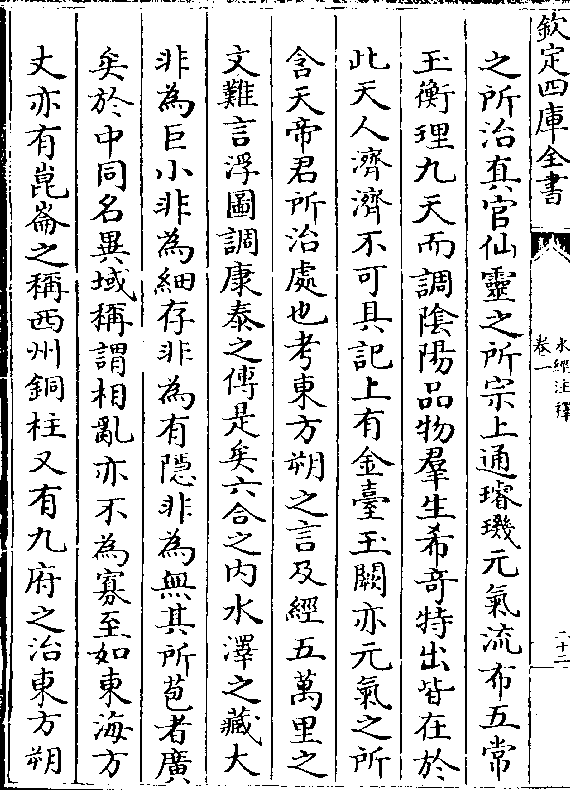 欽定四庫全書
水經注釋
卷一
二十二
之所治真官仙靈之所宗上通璿璣元氣流布五常
玉衡理九天而調陰陽品物羣生希奇特出皆在於
此天人濟濟不可具記上有金臺玉闕亦元氣之所
含天帝君所治處也考東方朔之言及經五萬里之
文難言浮圖調康泰之傳是矣六合之内水澤之藏大
非為巨小非為細存非為有隱非為無其所苞者廣
矣於中同名異域稱謂相亂亦不為寡至如東海方
丈亦有崑崙之稱西州銅柱又有九府之治東方朔